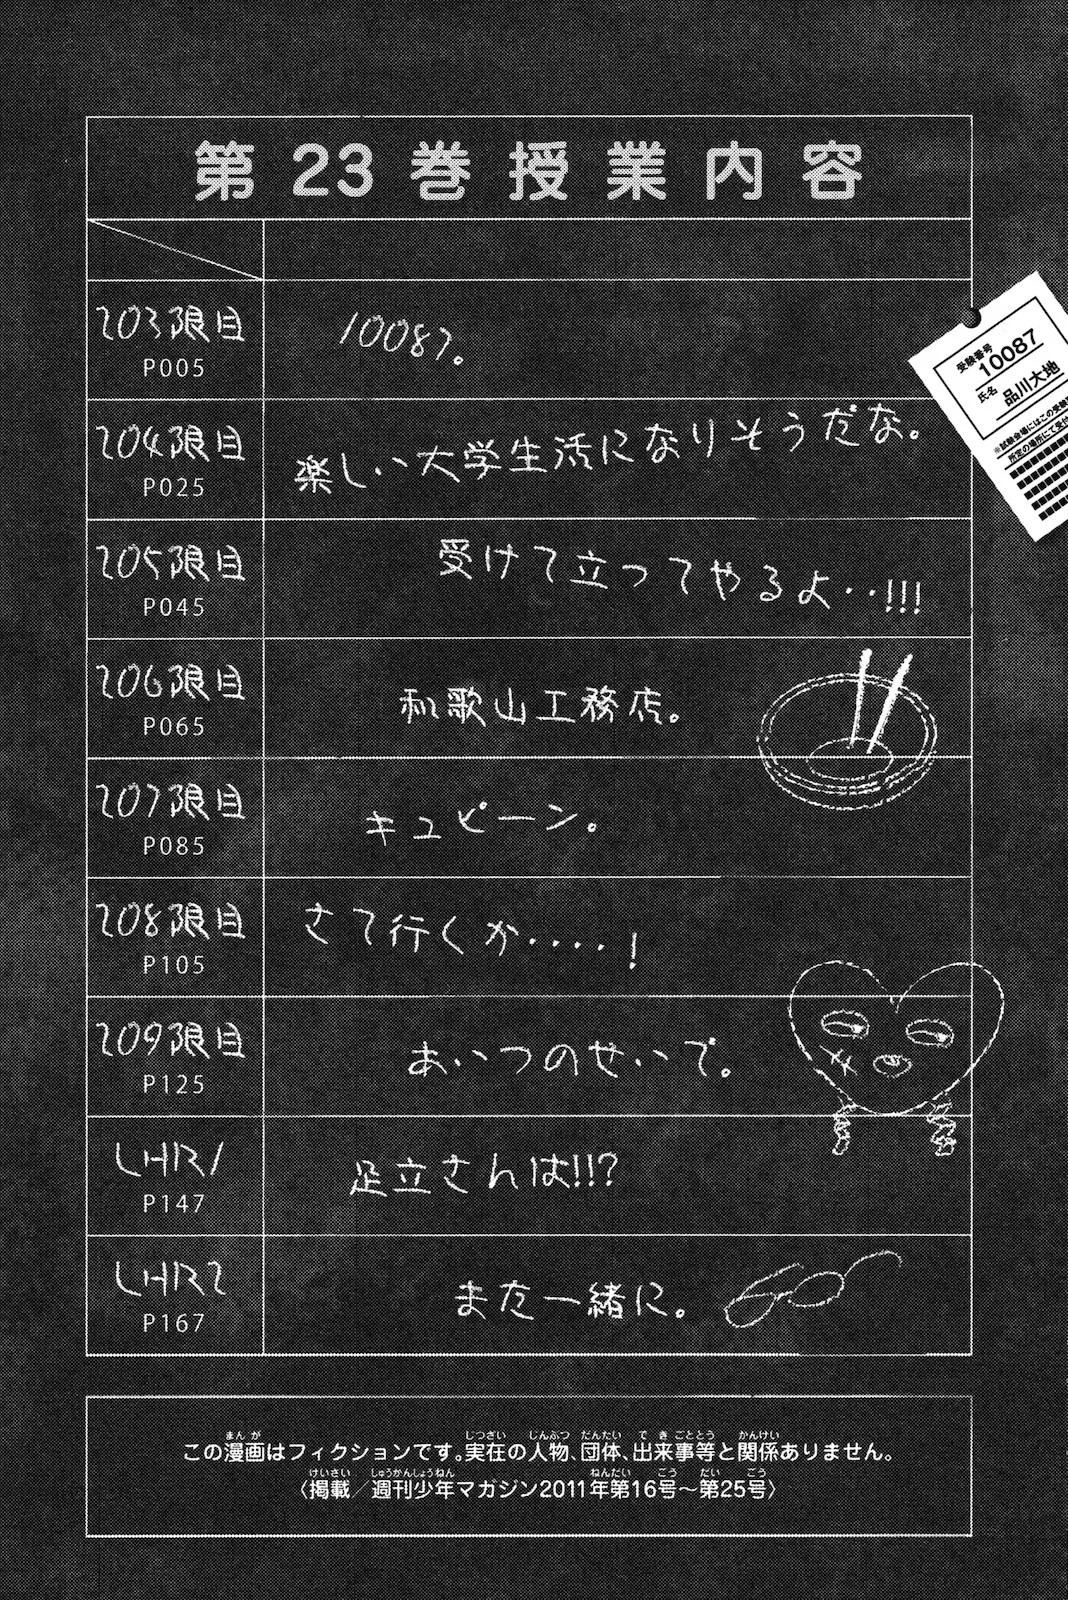 第23巻授業内容
203限目
P005
10087。
受験番号
10087
氏名
品川大地
204限目
P025
楽しい大学生活になりそうだな。
205限目
P045
受けて立ってやるよ‥!!!
206限目
P065
和歌山工務店。
207限目
P085
キュピーン。
208限目
P105
さて行くか‥‥!
209限目
P125
あいつのせいで。
LHR1
P147
足立さんは!!?
LHR2
P167
また一緒に。
この漫画はフィクションです。実在の人物、団体、出来事等と関係ありません。
〈掲載／週刊少年マガジン2011年第16号～第25号〉